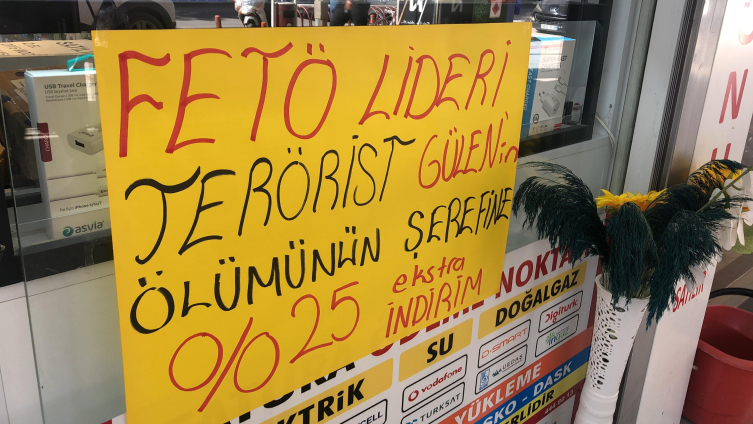 FETÖ LİDERİ
TERÖRİST GÜLENin
ÖLÜMÜNÜN ŞEREFİNE
%25 ekstra İNDİRİM
USB Travel Charger
asvia
NOKTA
SU
DOĞALGAZ
vodafone
TURKSAT
D-SMART
Digiturk
YÜKLEME
DASK